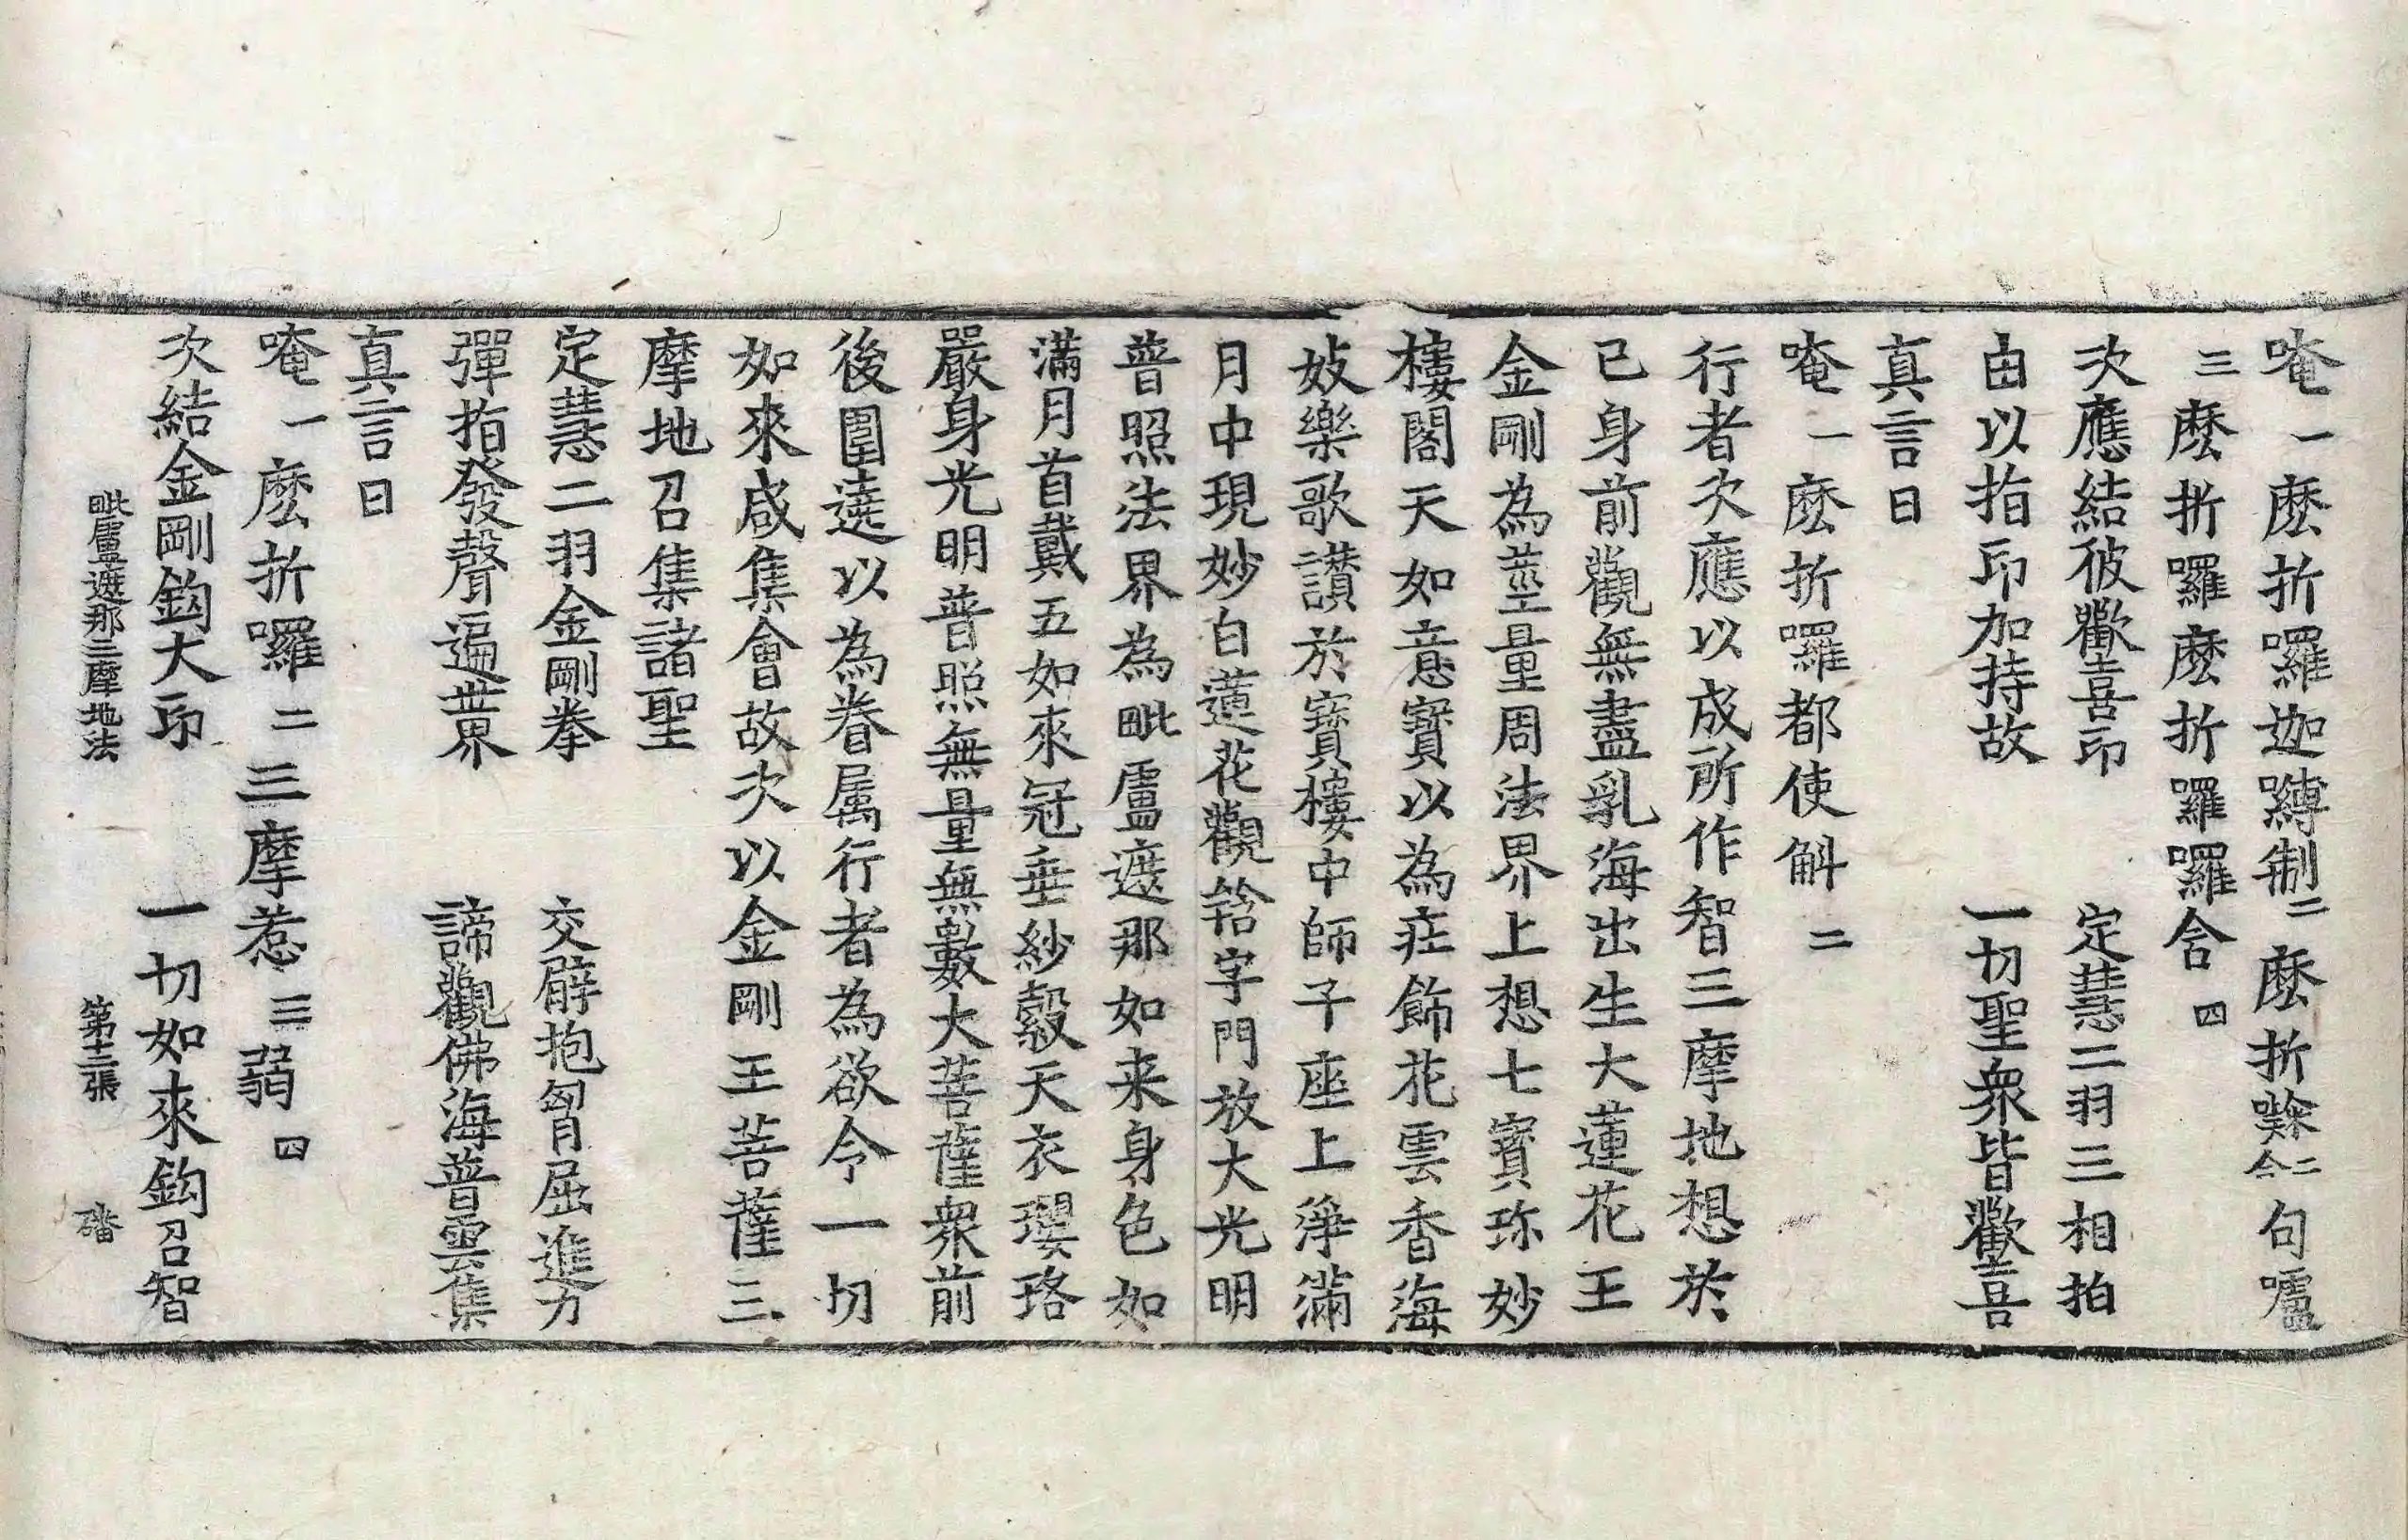 唵一麽折囉迦嚩制二麽折㘑二合句嚧
三麽折囉麽折囉囉含四
次應結彼歡喜印　定慧二羽三相拍
由以指印加持故　一切聖衆皆歡喜
真言曰
唵一麽折囉都使斛二
行者次應以成所作智三摩地想於
己身前觀無盡乳海出生大蓮花王
金剛為莖量周法界上想七寶珎妙
樓閣天如意寶以為莊飾花雲香海
妓樂歌讃於寶樓中師子座上淨滿
月中現妙白蓮花觀䤈字門放大光明
普照法界為毗盧遮那如来身色如
滿月首戴五如來冠垂紗縠天衣瓔珞
嚴身光明普照無量無數大菩薩衆前
後圍遶以為眷属行者為欲令一切
如來咸集會故次以金剛王菩薩三
摩地召集諸聖
定慧二羽金剛拳　交臂抱胷屈進力
彈指發聲遍世界　諦觀佛海普雲集
真言曰
唵一麽折囉二三摩惹三弱四
次結金剛鈎大印　一切如來鈎召智
毗盧遮那三摩地法　第十二張　磻